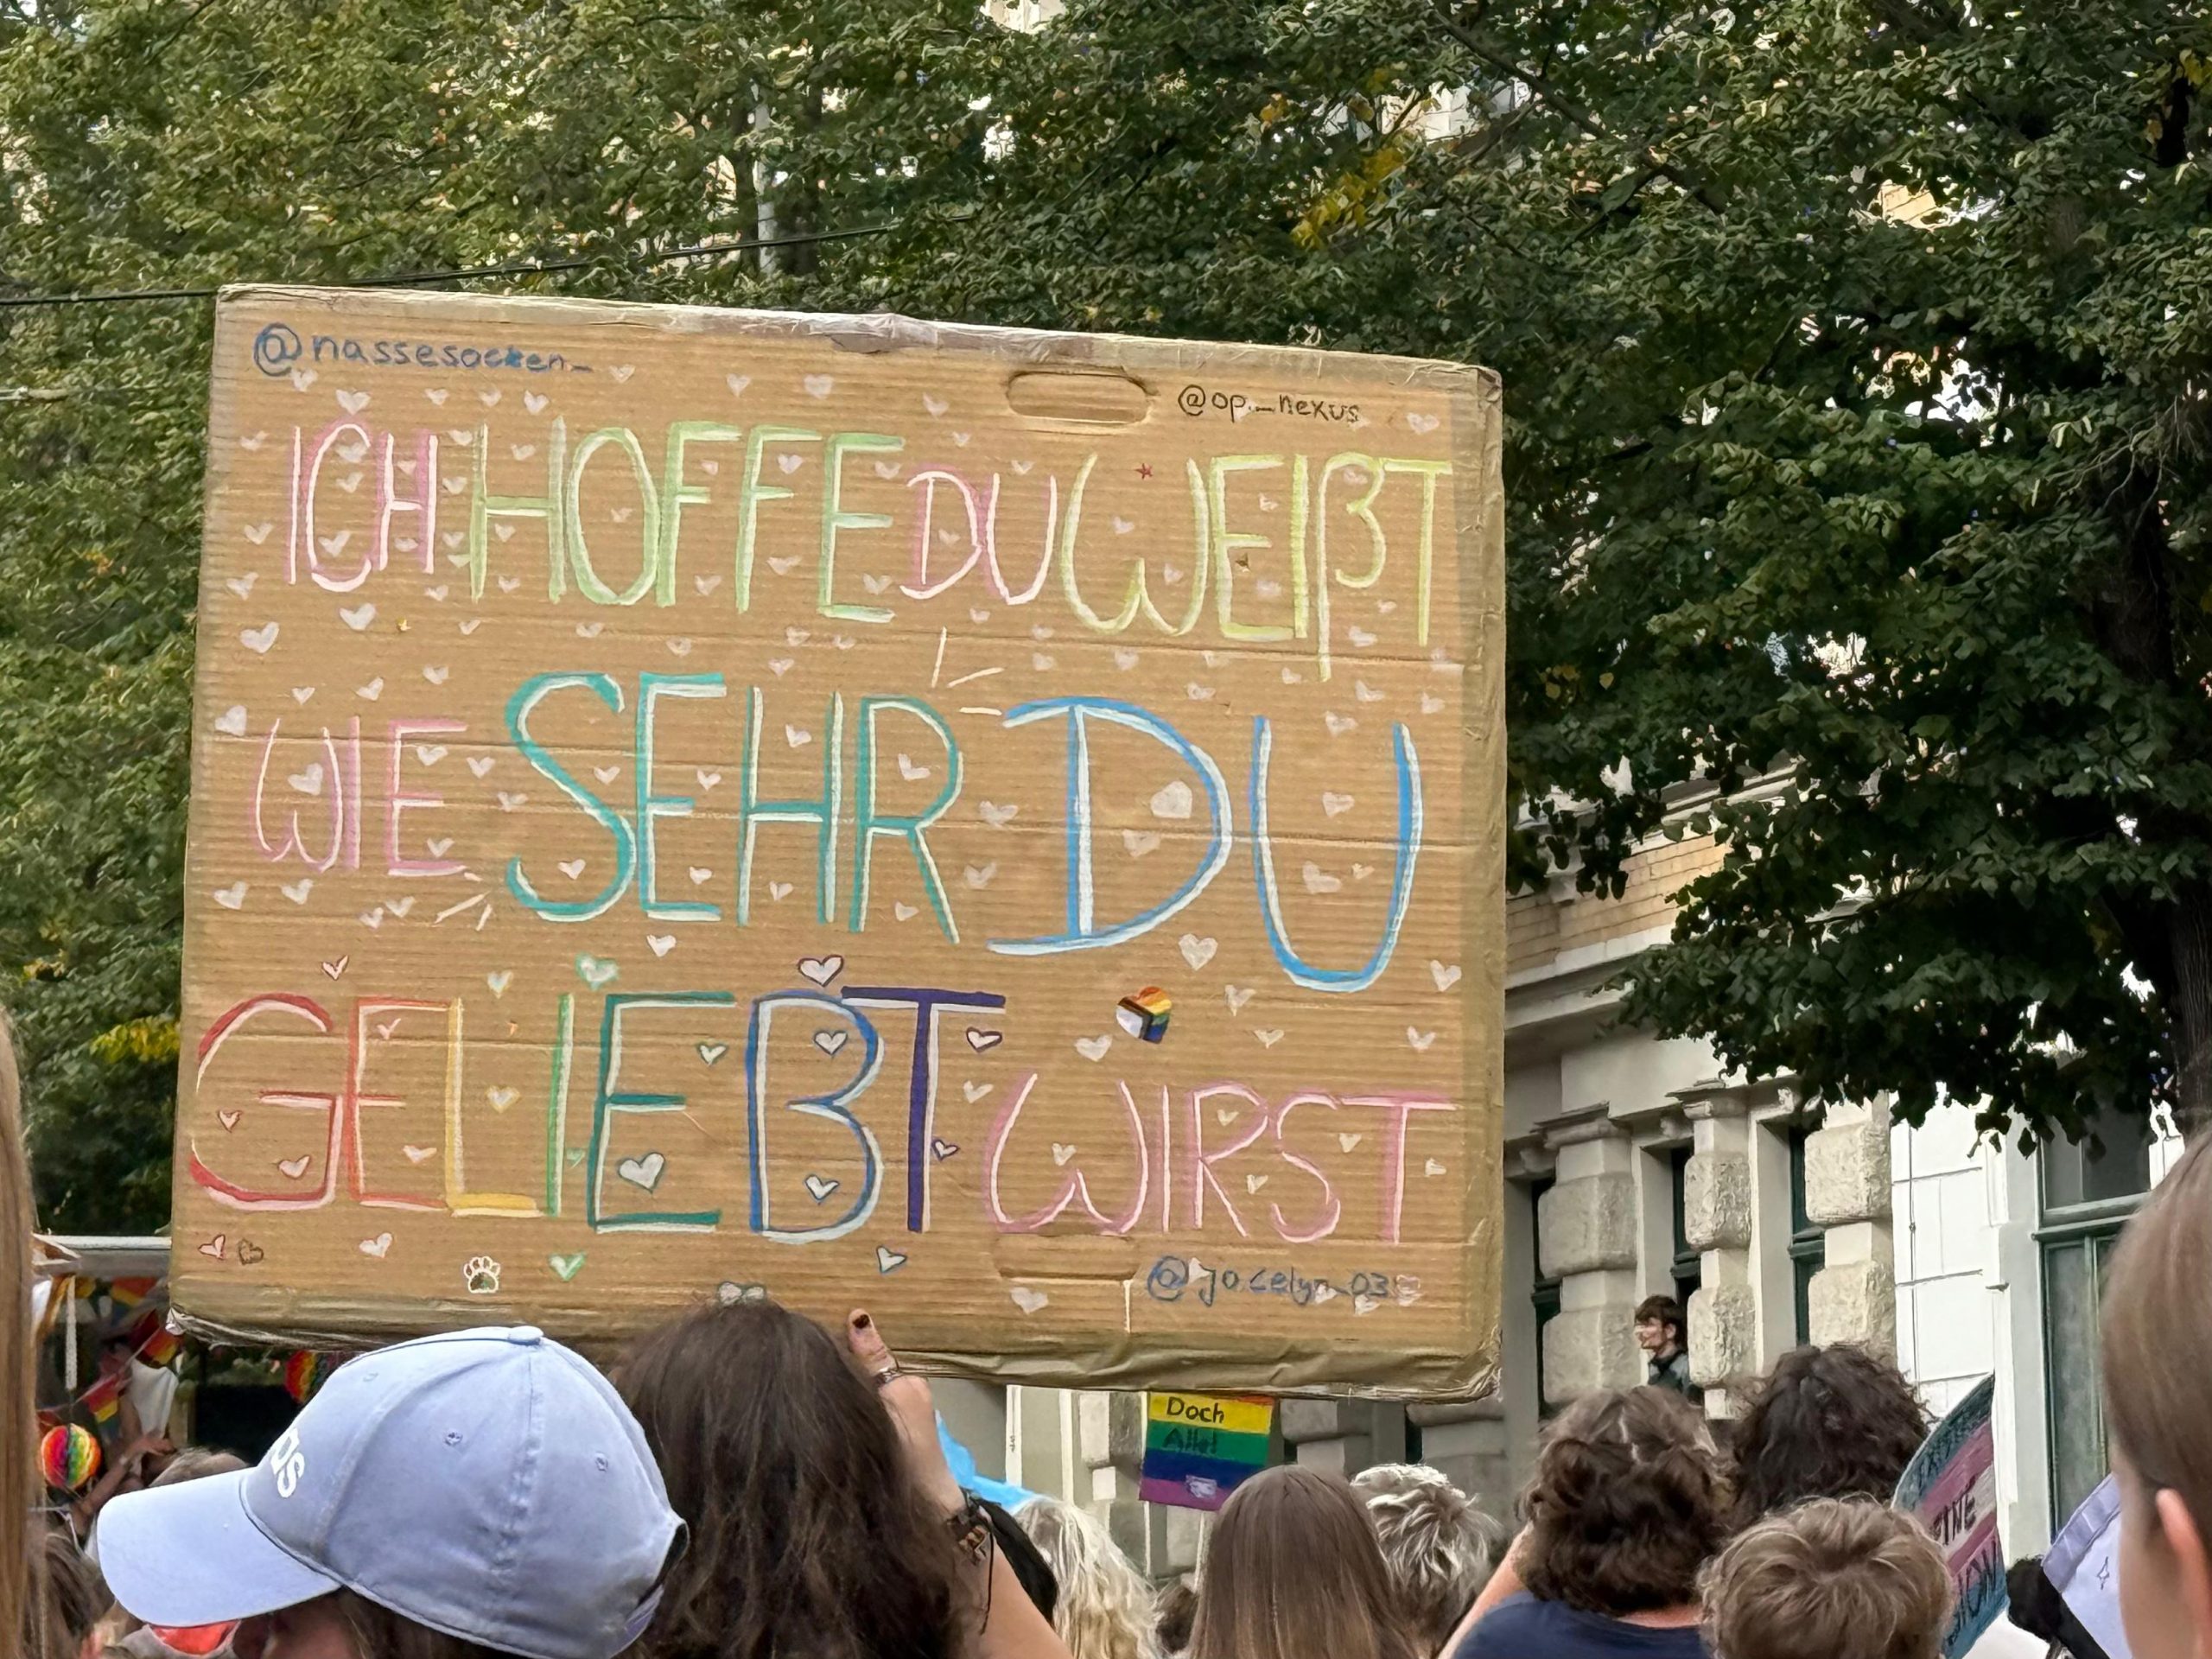 @nassesocken_
@op._nexus
ICH HOFFE DU WEIßT
WIE SEHR DU
GELIEBT WIRST
@jocelyn_03
Doch
Alle!